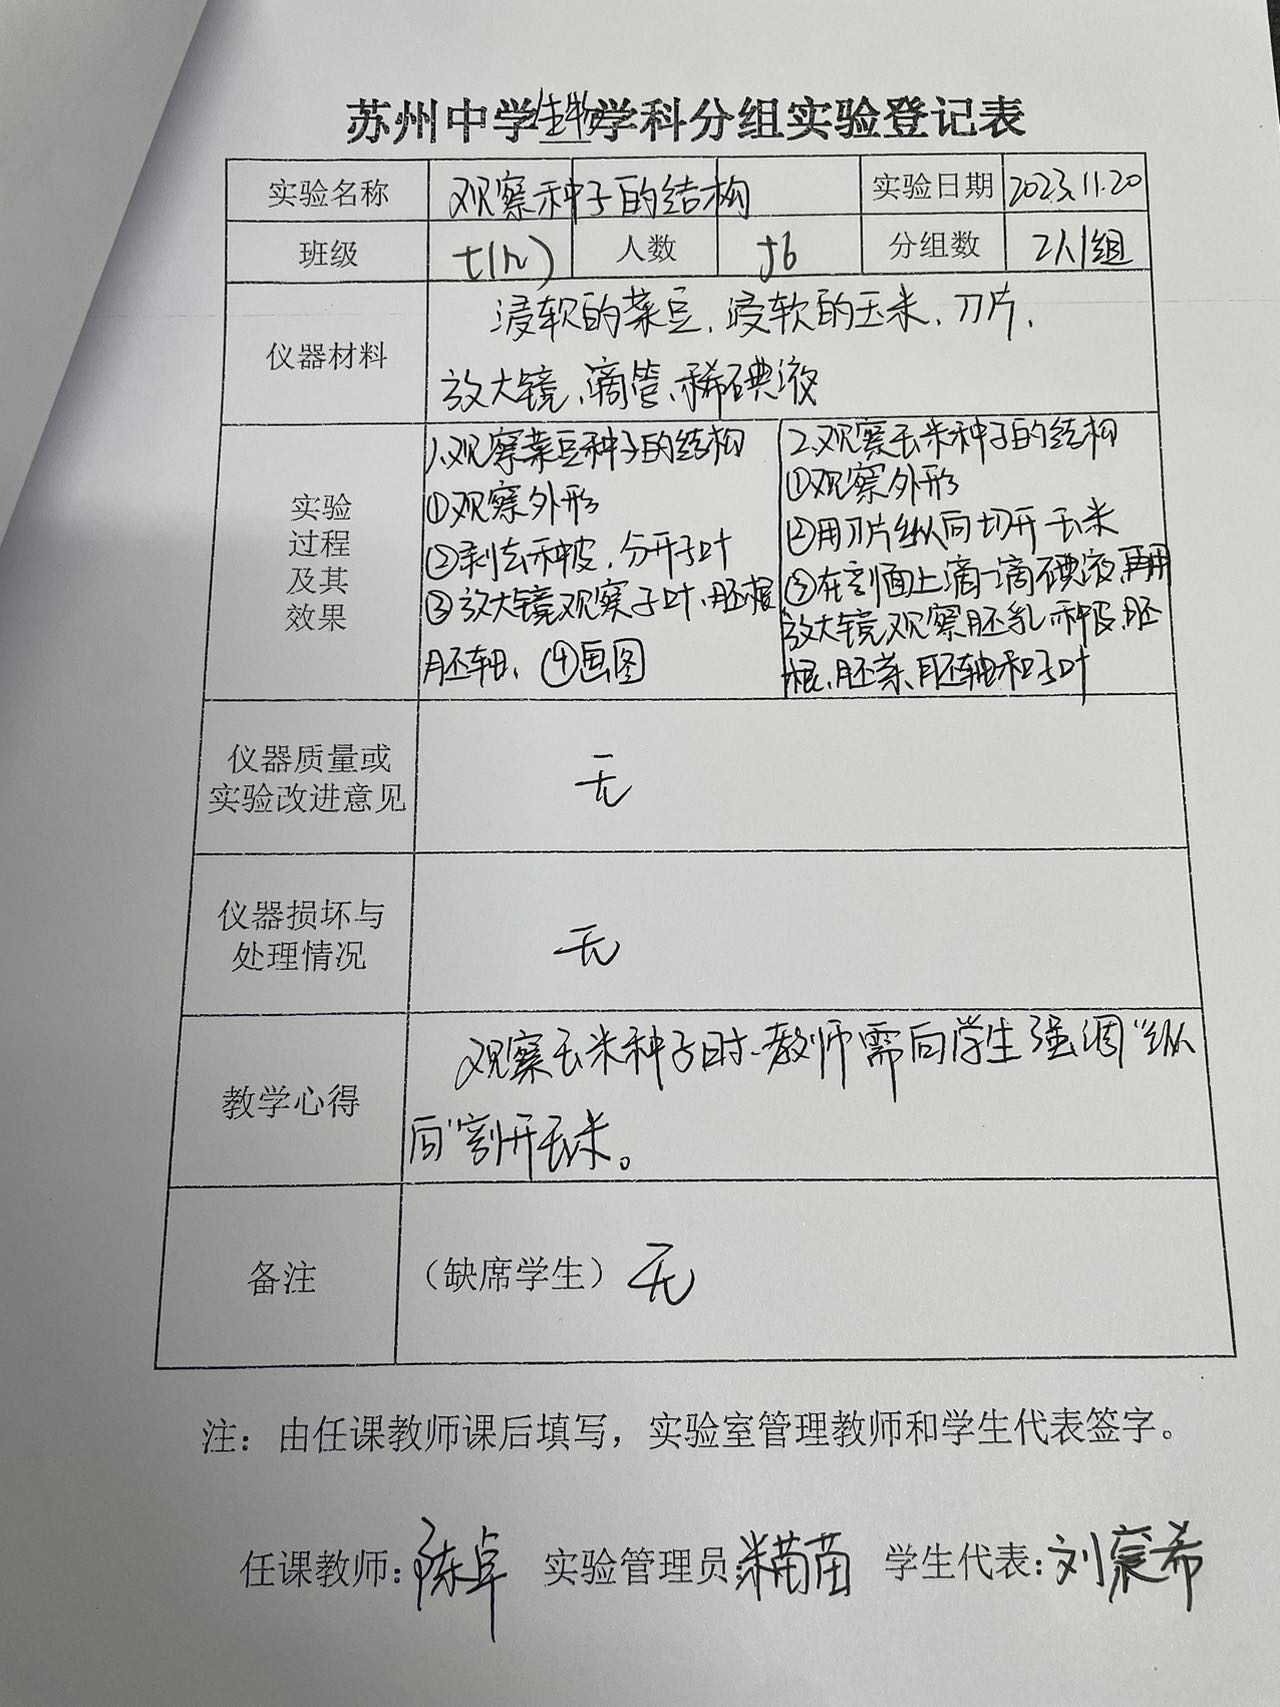 苏州中学生物学科分组实验登记表
实验名称 观察种子的结构 实验日期 2023.11.20
班级 七(12) 人数 56 分组数 2人1组
仪器材料
浸软的菜豆、浸软的玉米、刀片、
放大镜、滴管、稀碘液
实验
过程
及其
效果
1.观察菜豆种子的结构
①观察外形
②剥去种皮，分开子叶
③放大镜观察子叶、胚根
胚轴、④画图
2.观察玉米种子的结构
①观察外形
②用刀片纵向切开玉米
③在剖面上滴一滴碘液，再用
放大镜观察胚乳、种皮、胚
根、胚芽、胚轴和子叶
仪器质量或
实验改进意见
无
仪器损坏与
处理情况
无
教学心得
观察玉米种子时、教师需向学生强调“纵
向”割开玉米。
备注
（缺席学生）无
注：由任课教师课后填写，实验室管理教师和学生代表签字。
任课教师：陈卓 实验管理员：苗苗 学生代表：刘宸希